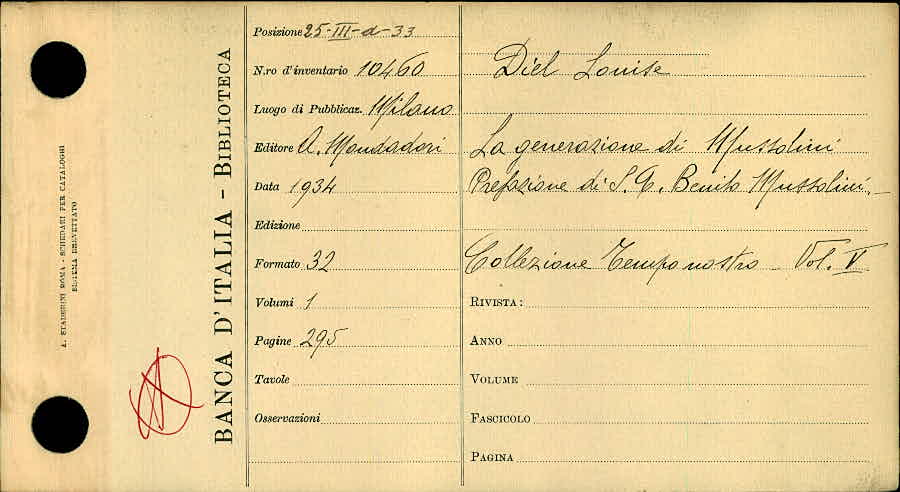 A. STADERINI ROMA - SCHEDARI PER CATALOGHI
SISTEMA BREVETTATO
BANCA D'ITALIA - BIBLIOTECA
Posizione 25-III-d-33
N.ro d'inventario 10460
Luogo di Pubblicaz. Milano
Editore A. Mondadori
Data 1934
Edizione
Formato 32
Volumi 1
Pagine 295
Tavole
Osservazioni
Diel Louise
La generazione di Mussolini
Prefazione di S. E. Benito Mussolini.-
Collezione Tempo nostro - Vol. V
RIVISTA:
ANNO
VOLUME
FASCICOLO
PAGINA